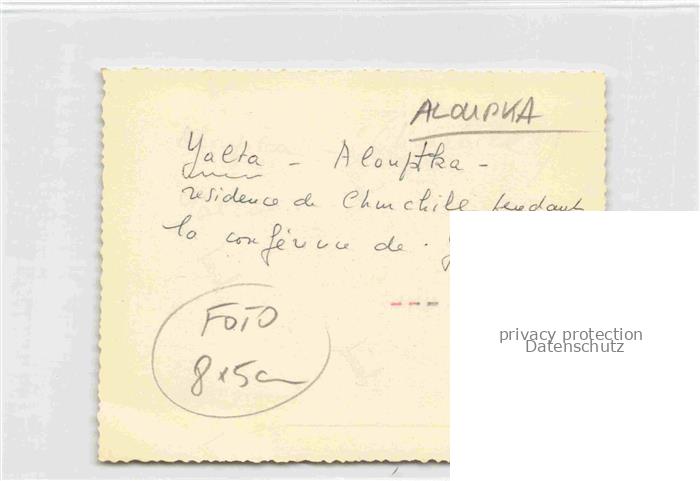 ALOUPKA
Yalta - Alouptka -
residence de Churchill pendant
la conférence de
FOTO
8x5cm
privacy protection
Datenschutz